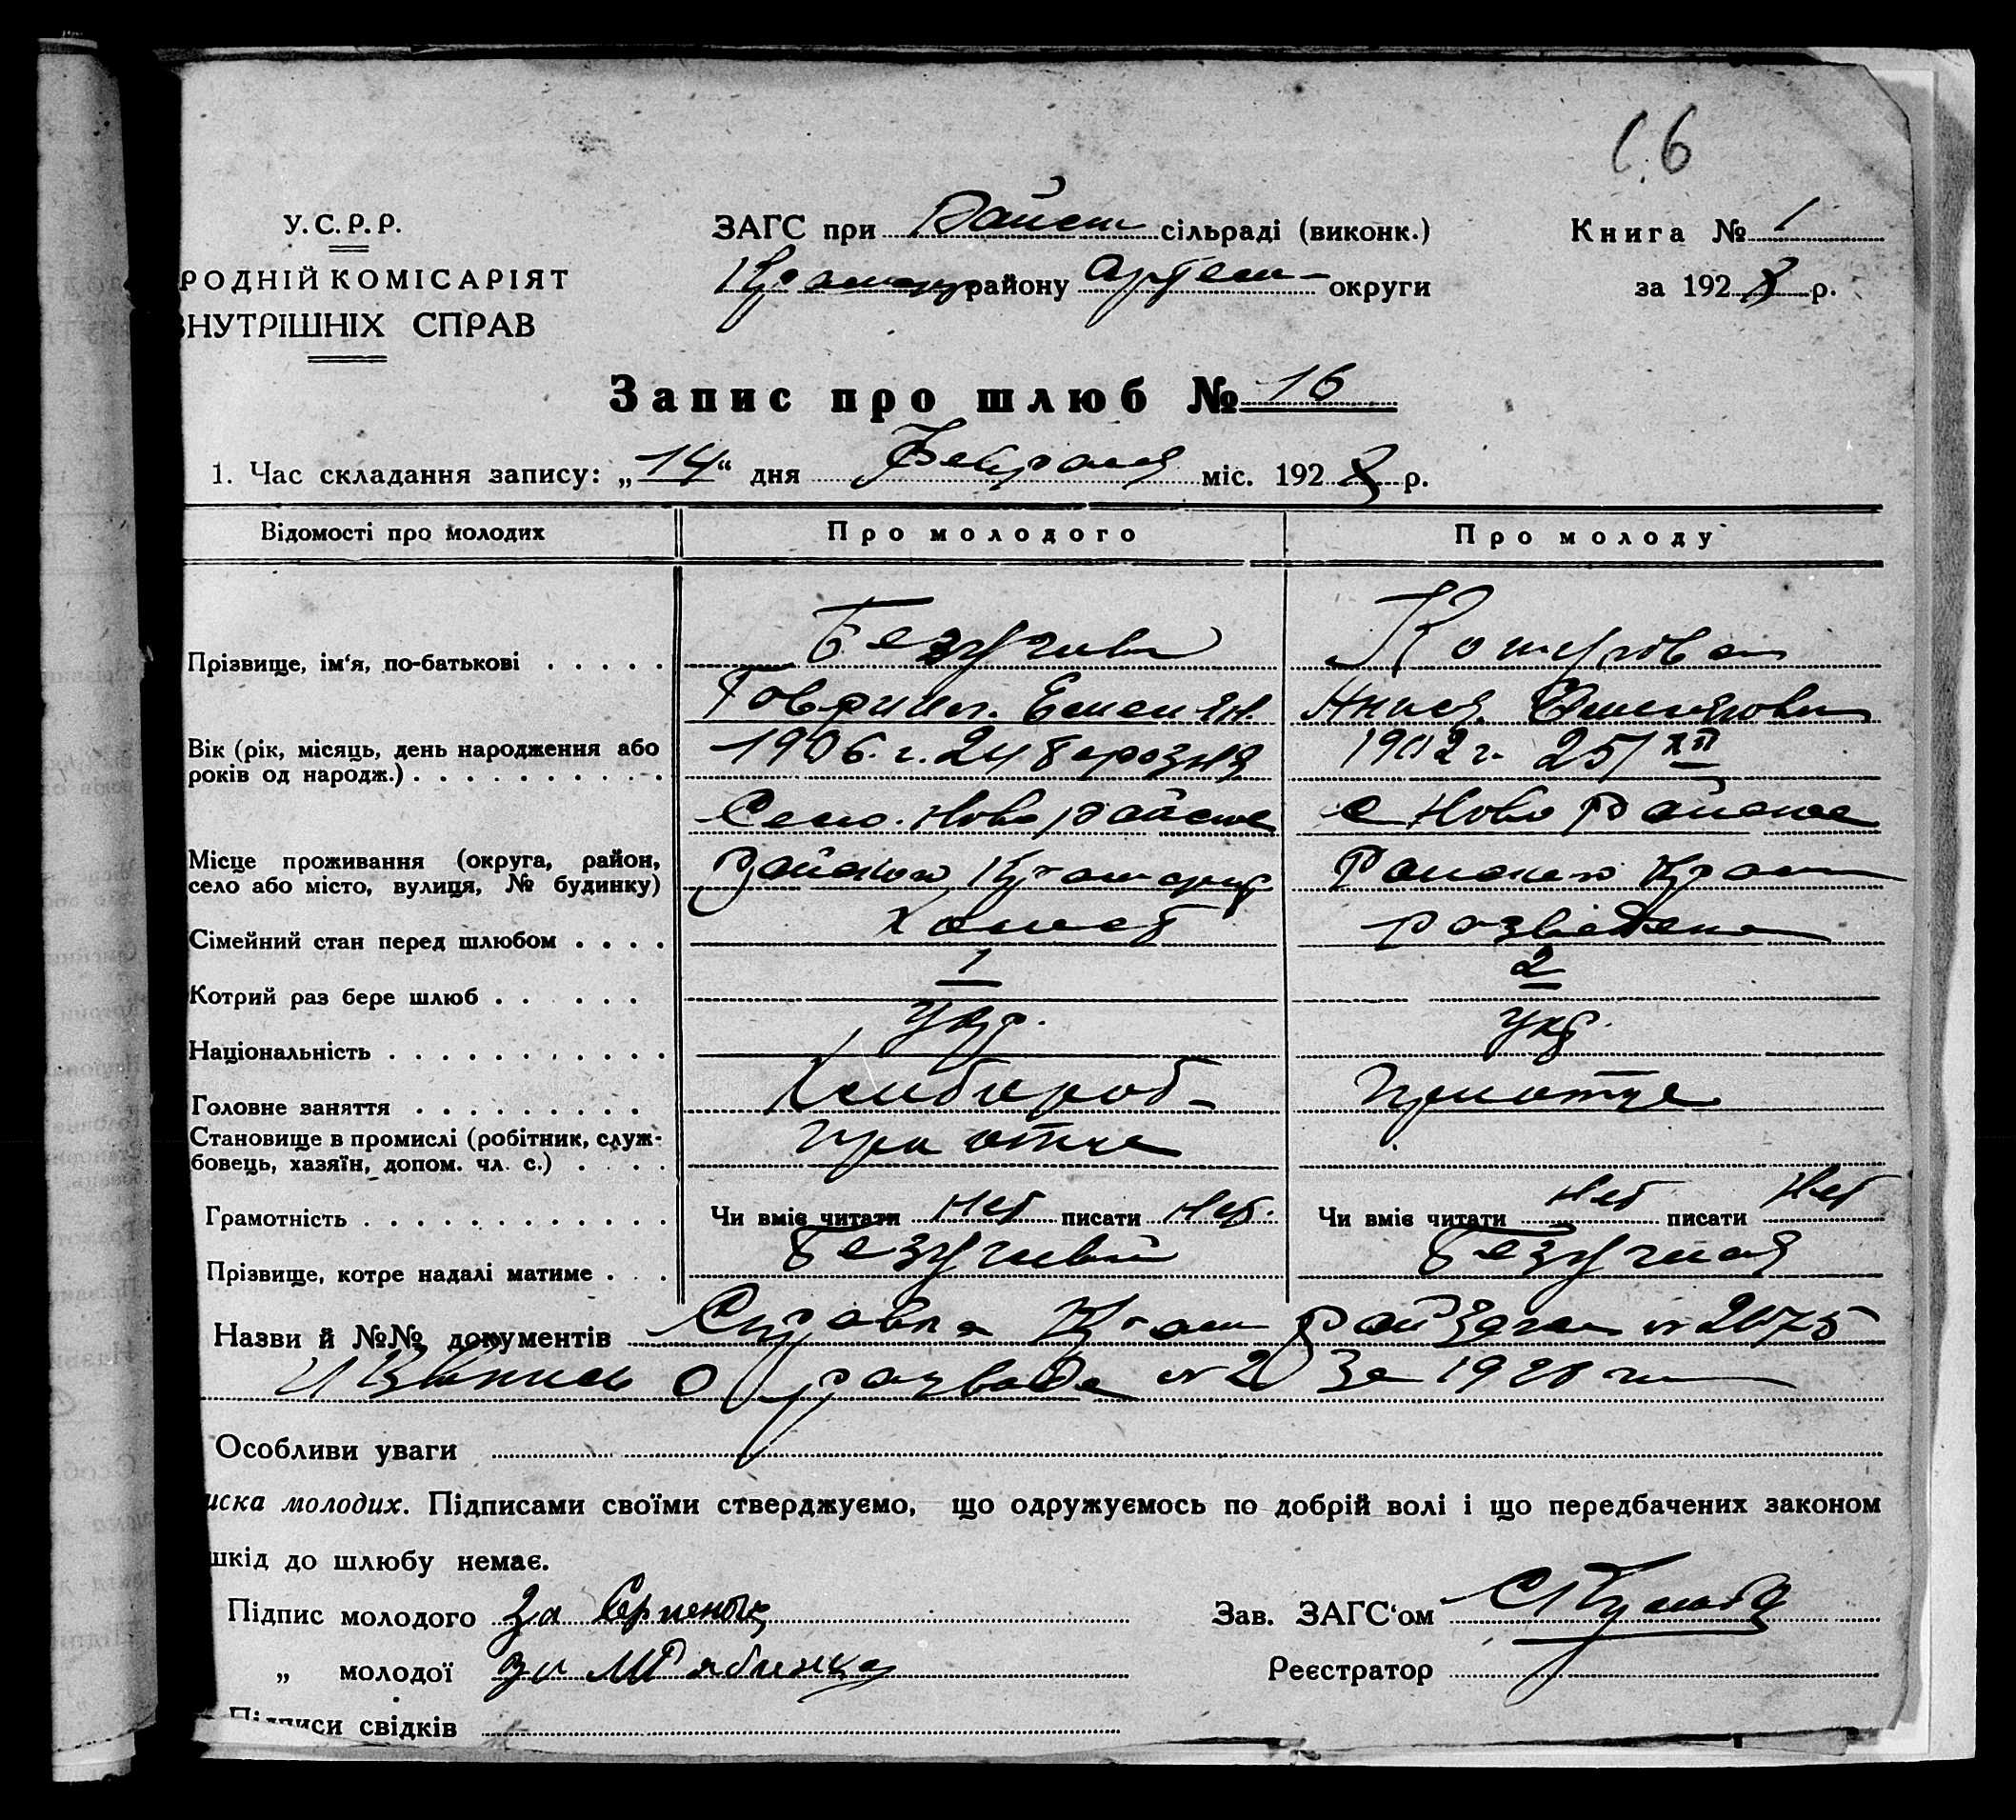 с. 6
У.С.Р.Р.
РОДНІЙ КОМІСАРІЯТ
ВНУТРІШНІХ СПРАВ
ЗАГС при Райск сільраді (виконк.)
району Артем- округи
Книга № 1
за 1928 р.
Запис про шлюб № 16
1. Час складання запису: „14“ дня Февраля міс. 1928 р.
Відомості про молодих Про молодого Про молоду
Прізвище, ім'я, по-батькові . . . . .
Безугий
Гаврил. Емельян.
Анися Емельянова
Вік (рік, місяць, день народження або
років од народж.) . . . . . . . . . . .
1906. г. 24 березня
1902 г. 25/XII
Місце проживання (округа, район,
село або місто, вулиця, № будинку)
Село. Ново райское
с Ново Райское
Райского
Райского Крам
Сімейний стан перед шлюбом . . . .
Холост
розведена
Котрий раз бере шлюб . . . . . .
1
2
Національність . . . . . . . . . . .
укр.
укр.
Головне заняття . . . . . . . . .
Хлибороб-
при отце
Становище в промислі (робітник, служ-
бовець, хазяїн, допом. чл. с.) . . . .
при отце
Грамотність . . . . . . . . . . . .
Чи вміє читати Нет писати Нет.
Чи вміє читати Нет писати Нет
Прізвище, котре надалі матиме . . .
Безуглий
Безуглая
Назви й №№ документів Справка Крам Рай Загса №
И Выпись о разводе № 2 За 1928 г
Особливи уваги
иска молодих. Підписами своїми стверджуємо, що одружуємось по добрій волі і що передбачених законом
шкід до шлюбу немає.
Підпис молодого За
Зав. ЗАГС'ом
„ молодої за
Реєстратор
Підписи свідків